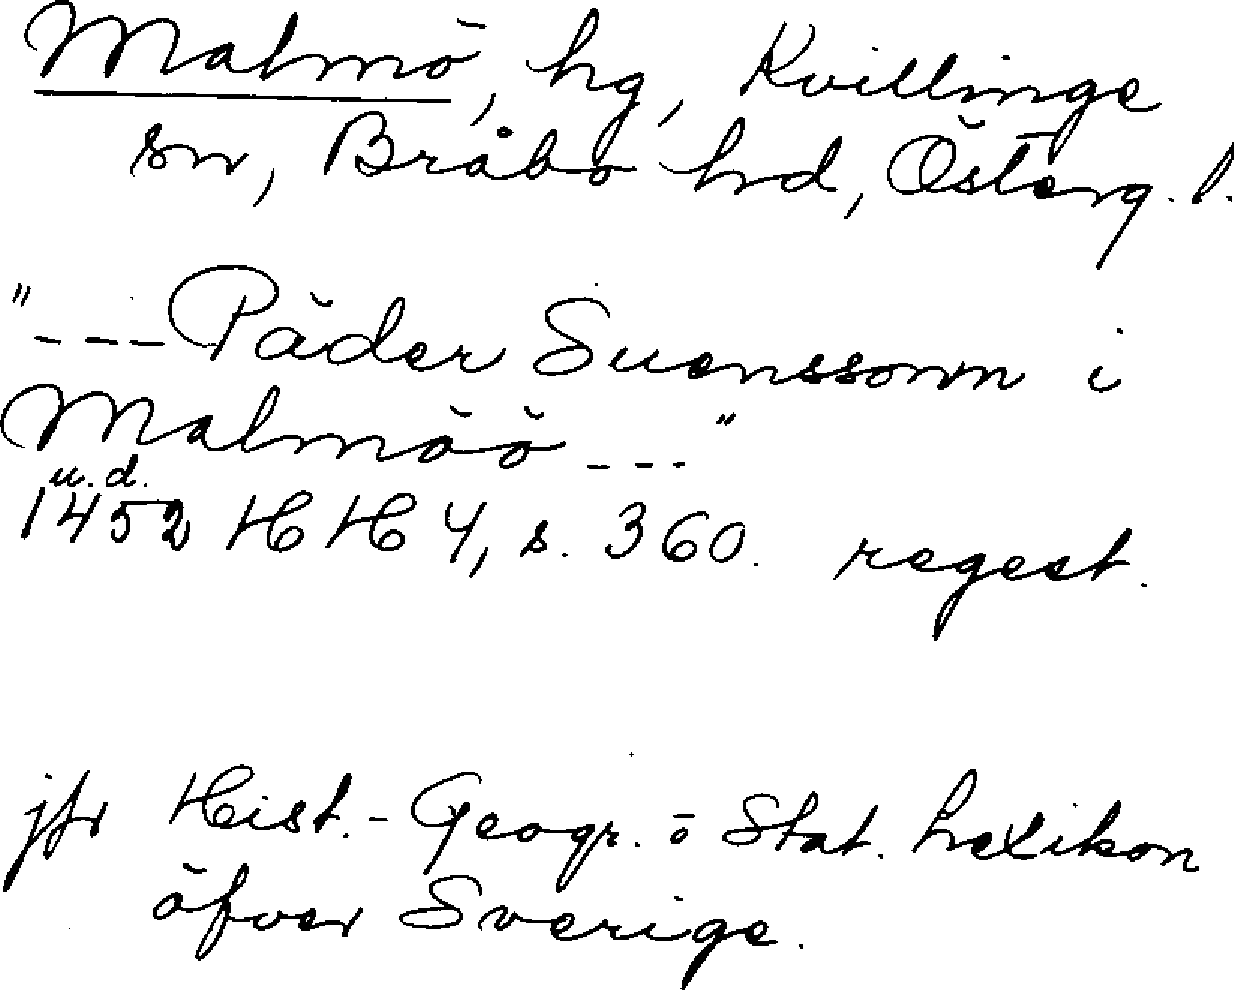 Malmö, hg, Kvillinge
sn, Bråbo hd, Österg. l.
"--- Päder Suenssonn i
Malmöö ---"
u.d.
1452 HH 4, s. 360. regest.
jfr Hist.- Geogr. o Stat. Lexikon
öfver Sverige.